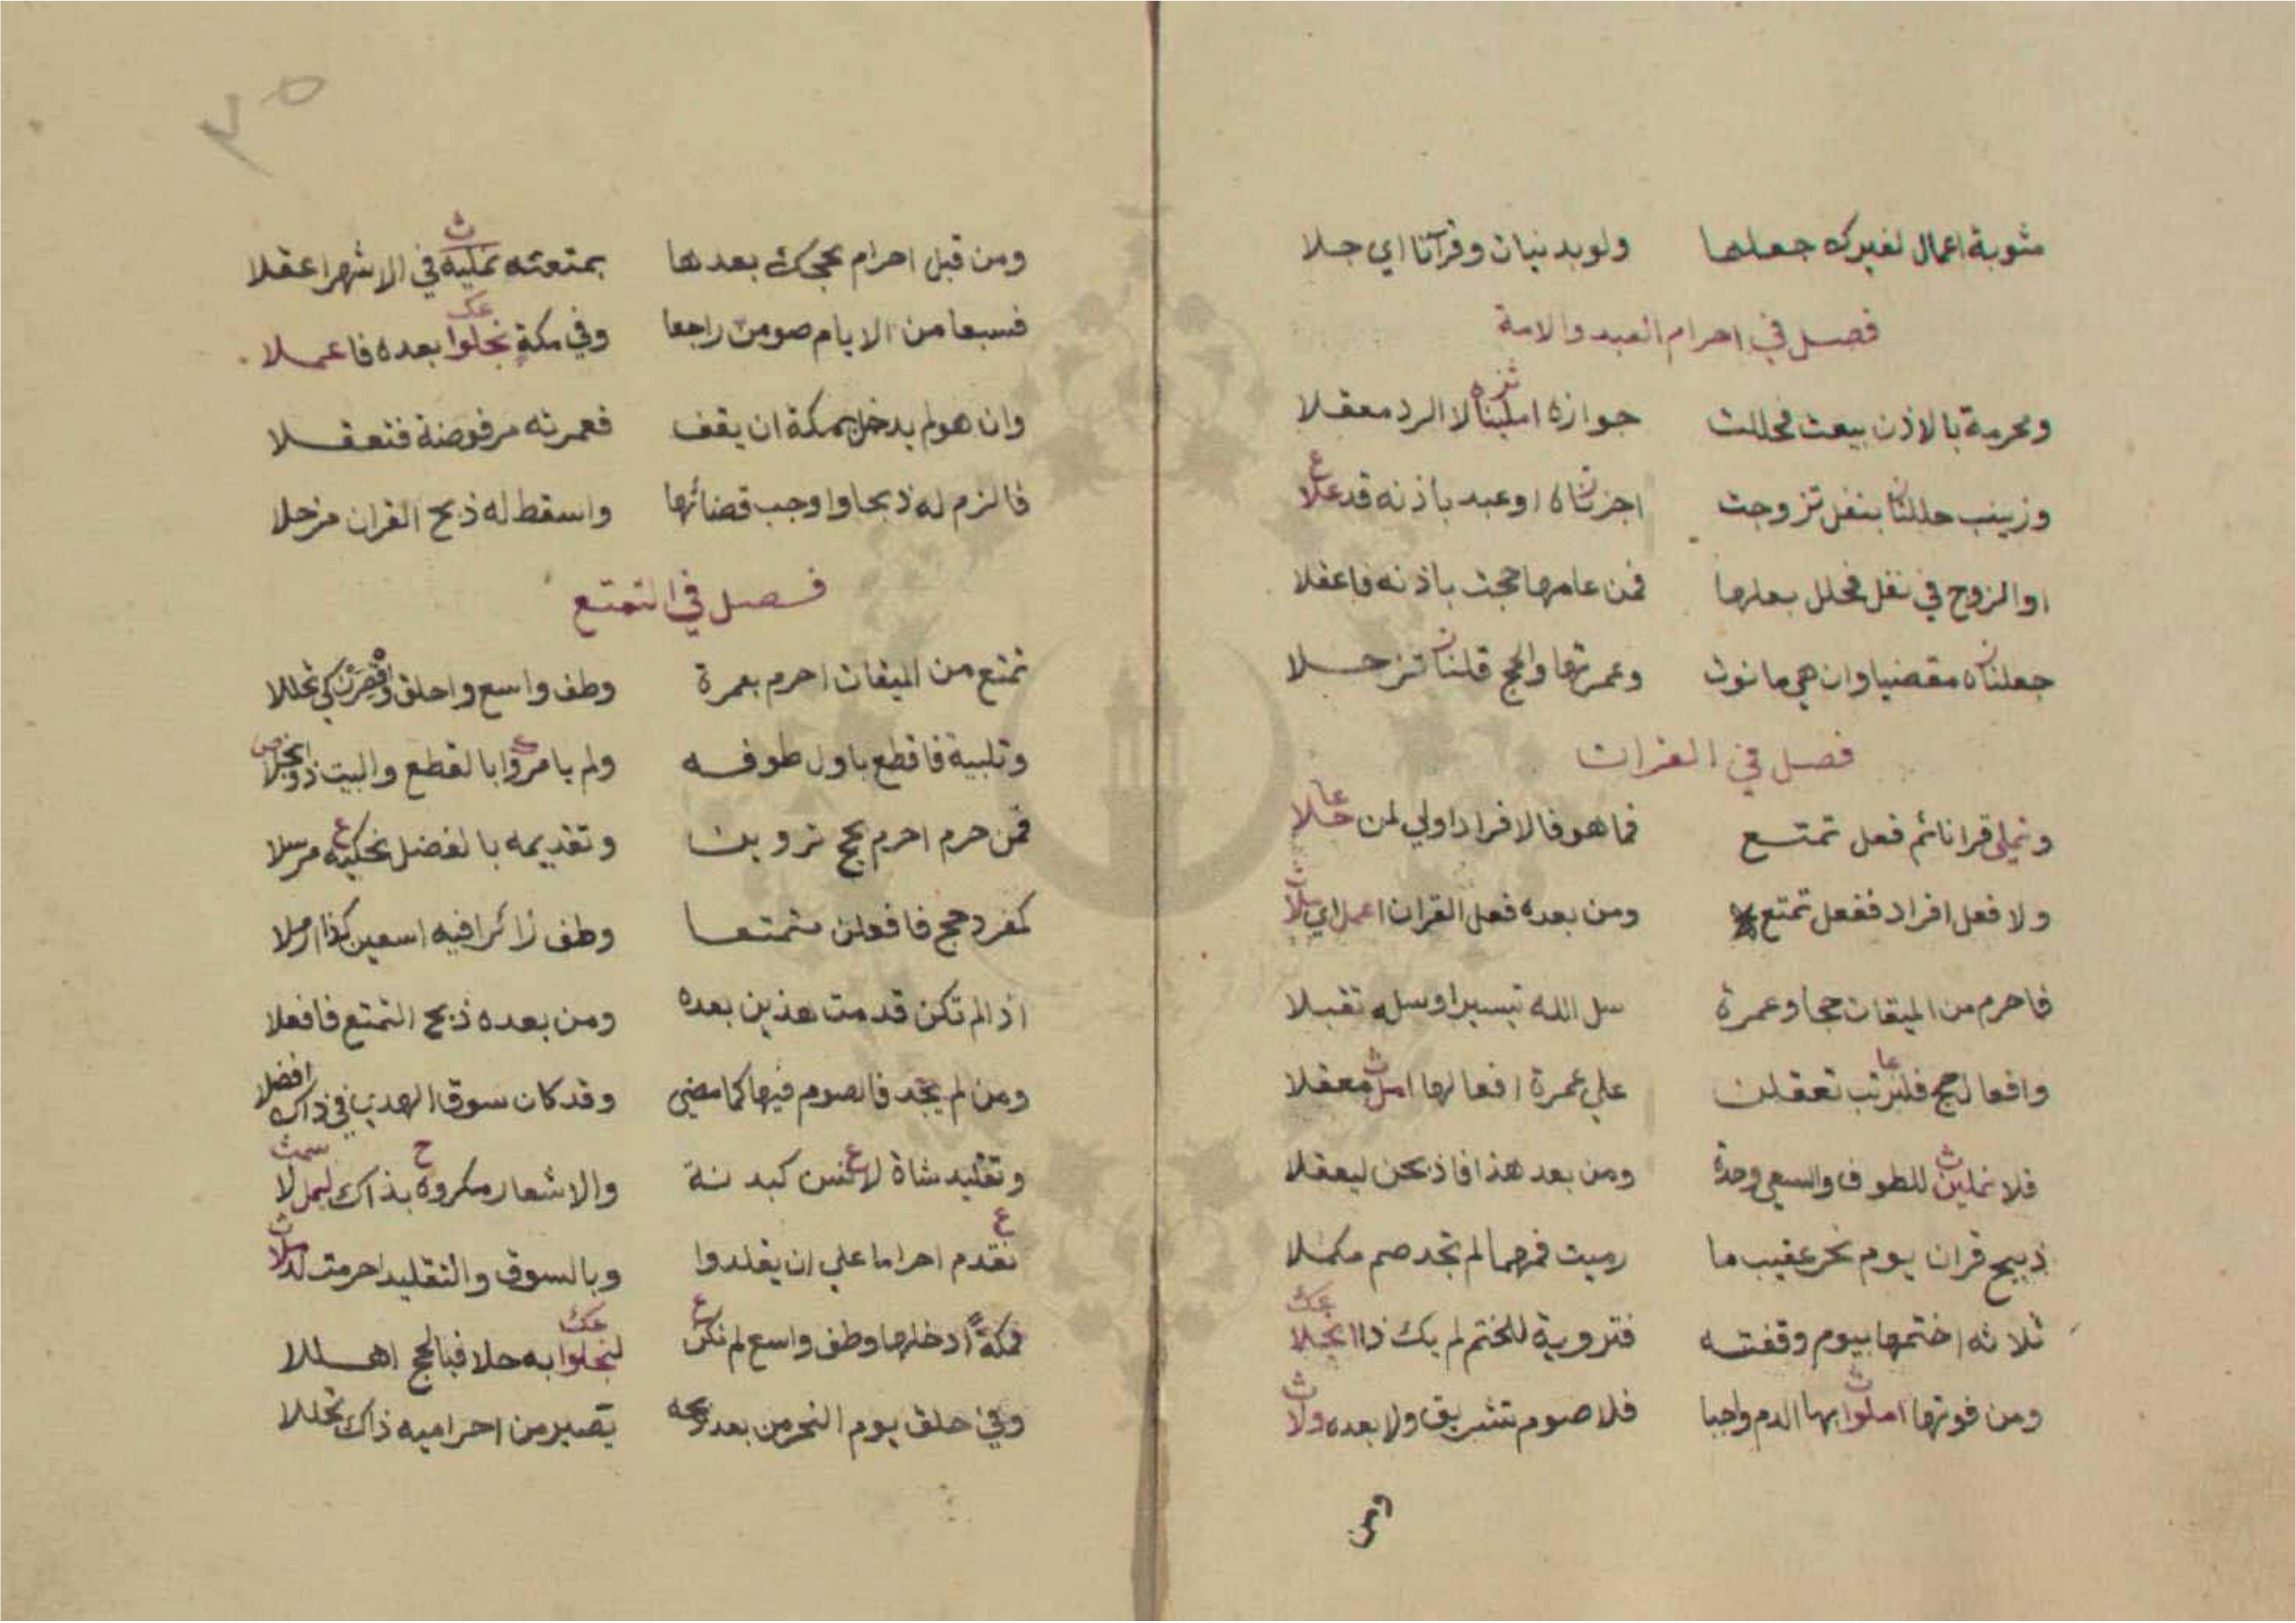 مثوبة اعمال لغيرك جعلها ولو بدنيان وقرآنا اي جلا
فصل في احرام العبد والامة
ومحرمة بالاذن بيعت فحللت جوازه املينا لا الرد معقلا
وزينب حللنا بنفل تزوجت اجزناه او عبد باذنه قد علا
او الزوج في نفل فحلل بعلها فمن عامها حجت باذنه فاعقلا
جعلناه مقضيا وان هي ما نوت وعمرتها والحج قلنا
فصل في القران
قرانا ثم فعل تمتع فما هو فالافراد اولي لمن
ولا فعل افراد ففعل تمتع ومن بعده فعل القران
فاحرم من الميقات حجا وعمرة سل الله تيسيرا وسله تقبلا
وافعال حج تعقلن علي عمرة افعالها معقلا
فلا للطوف والسعي وحدة ومن بعد هذا فاذبحن ليعقلا
ذبيح قران يوم نحر عقيب ما رميت لم تجد صم مكملا
ثلاثة اختمها بيوم وقفته فتروية للختم لم يك ذا
ومن فوتها املوا بها الدم واجبا فلا صوم تشريق ولا بعده ولا
ومن
٣٥
ومن قبل احرام بحجك بعدها بمتعته في الاشهر اعقلا
فسبعا من الايام صومن راجعا وفي مكة بعده فاعملا
وان هو لم يدخل بمكة ان يقف فعمرته مرفوضة فتعقلا
فالزم له ذبحا واوجب قضائها واسقط له ذبح القران
فصل في التمتع
تمتع من الميقات احرم بعمرة وطف واسع واحلق وقصرن كي تحللا
وتلبية فاقطع باول طوفه ولم يامروا بالقطع والبيت
فمن حرم احرم بحج وتقديمه بالفضل مرسلا
كمفرد حج فافعلن متمتعا وطف زائرا فيه اسعين كذا ارملا
اذا لم تكن قدمت هذين بعده ومن بعده ذبح التمتع فافعلا
ومن لم يجد فالصوم فيها كما مضي وقد كان سوق الهدي في ذاك افضلا
وتقليد شاة كبدنة والاشعار مكروه بذاك
تقدم احراما علي ان يقلدوا وبالسوق والتقليد احرمت
فمكة ادخلها وطف واسع لم تكن به حلا فبالحج اهللا
وفي حلق يوم النحر من بعد ذبحه تصير من احراميه ذاك تحللا